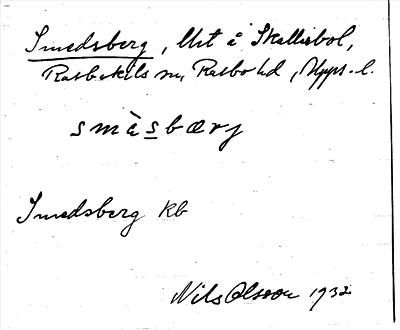 Smedsberg, lht å Skallerbol,
Rasbokils sn, Rasbo hd, Upps. l.
smàsbærj
Smedsberg kb
Nils Olsson 1932